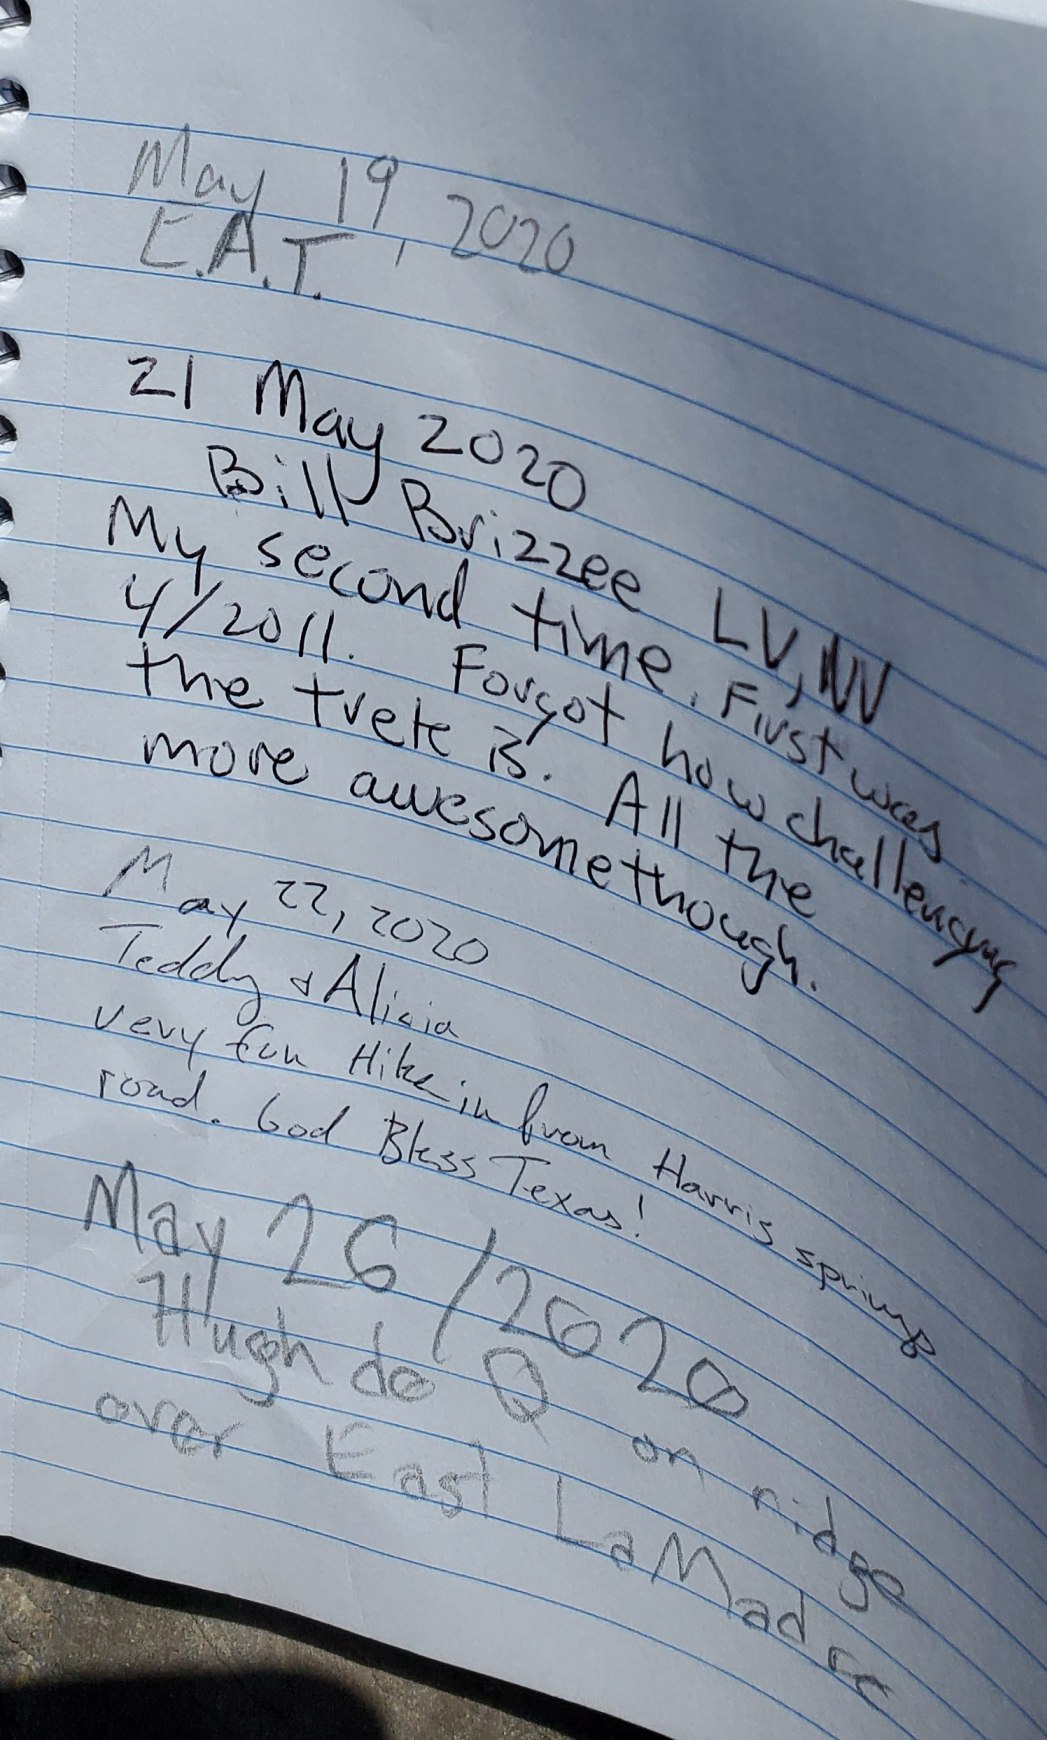 May 19, 2020
E.A.T.
21 May 2020
Bill Brizzee LV, NV
My second time. First was
4/2011. Forgot how challenging
the trek is. All the
more awesome though.
May 22, 2020
Teddy & Alicia
very fun Hike in from Harris springs
road. God Bless Texas!
May 26/2020
Hugh do Q on ridge
over East LaMadre